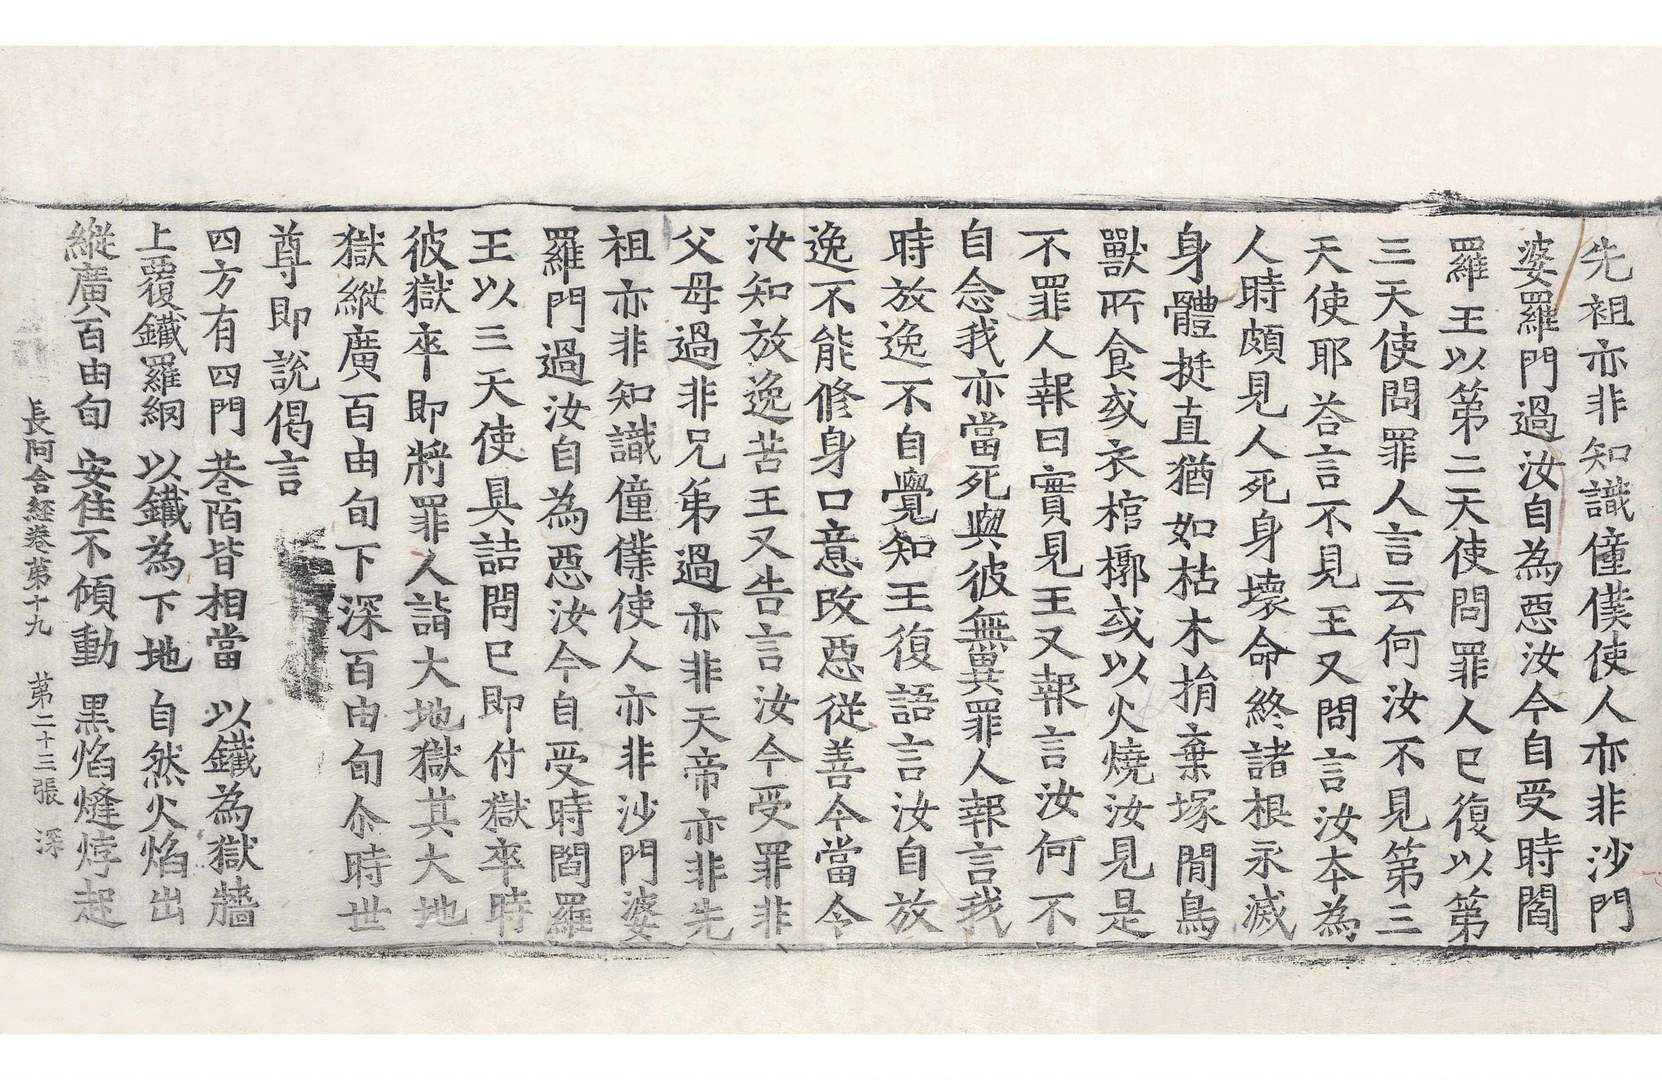 先祖亦非知識僮僕使人亦非沙門
婆羅門過汝自為惡汝今自受時閻
羅王以第二天使問罪人已復以第
三天使問罪人言云何汝不見第三
天使耶荅言不見王又問言汝本為
人時頗見人死身壞命終諸根永滅
身體挺直猶如枯木捐棄塚間鳥
獸所食或衣棺槨或以火燒汝見是
不罪人報曰實見王又報言汝何不
自念我亦當死與彼無異罪人報言我
時放逸不自覺知王復語言汝自放
逸不能修身口意改惡從善今當令
汝知放逸苦王又告言汝今受罪非
父母過非兄弟過亦非天帝亦非先
祖亦非知識僮僕使人亦非沙門婆
羅門過汝自為惡汝今自受時閻羅
王以三天使具詰問已即付獄卒時
彼獄卒即將罪人詣大地獄其大地
獄縱廣百由旬下深百由旬尒時世
尊即說偈言
四方有四門 巷陌皆相當 以鐵為獄牆
上覆鐵羅網 以鐵為下地 自然火焰出
縱廣百由旬 安住不傾動 黑焰熢㶿起
長阿含經卷第十九 第二十三張 深